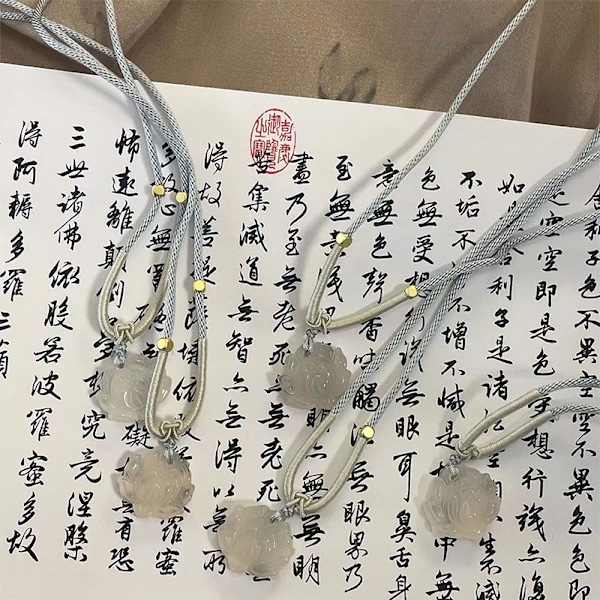 舍利子色不異空空不異色色即
是空空即是色想行識亦復
如是利子是諸法不生不滅
不垢不不增不減是中無
色無受想行識無眼耳鼻舌身
意無色聲香味觸無眼界乃
至無意識無無明
盡乃至無老死亦無老死
苦集滅道無智亦無得以無所
得故菩提薩埵依般羅蜜
多故心無罣礙礙無有恐
怖遠離顛倒夢究竟涅槃
三世諸佛依般若波羅蜜多故
得阿耨多羅三藐
嘉慶御覽之寶